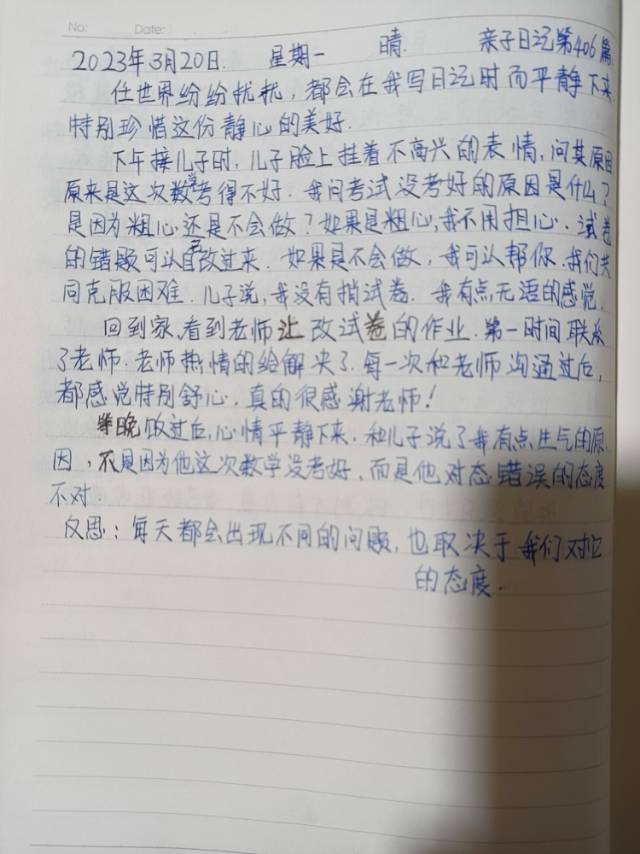 No: Date:
2023年3月20日 星期一 晴 亲子日记第406篇
任世界纷纷扰扰，都会在我写日记时而平静下来
特别珍惜这份静心的美好.
下午接儿子时，儿子脸上挂着不高兴的表情，问其原因
原来是这次数学考得不好. 我问考试没考好的原因是什么？
是因为粗心还是不会做？如果是粗心，我不用担心. 试卷
的错题可以自己改过来. 如果是不会做，我可以帮你. 我们共
同克服困难. 儿子说，我没有拍试卷. 我有点无语的感觉.
回到家，看到老师让改试卷的作业. 第一时间联系
了老师. 老师热情的给解决了. 每一次和老师沟通过后，
都感觉特别舒心. 真的很感谢老师！
等晚饭过后，心情平静下来，和儿子说了我有点生气的原
因，不是因为他这次数学没考好，而是他对态错误的态度
不对.
反思：每天都会出现不同的问题，也取决于我们对它
的态度.